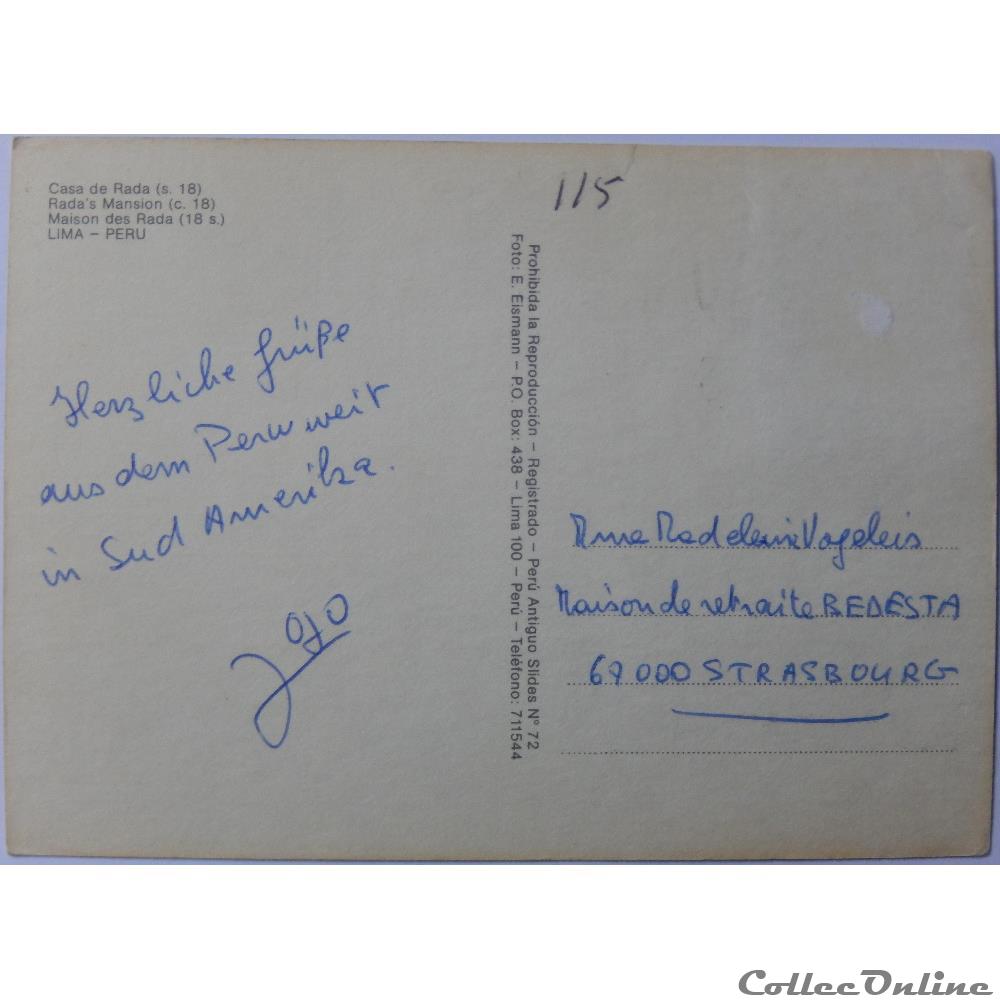 Casa de Rada (s. 18)
Rada's Mansion (c. 18)
Maison des Rada (18 s.)
LIMA – PERU
115
Herzliche Grüße
aus dem Peru weit
in Sud Amerika.
Jojo
Prohibida la Reproducción – Registrado – Perú Antiguo Slides Nº 72
Foto: E. Eismann – P.O. Box: 438 – Lima 100 – Perú – Teléfono: 711544
Mme Madeleine Vogeleis
Maison de retraite BEDESTA
67000 STRASBOURG
CollecOnline